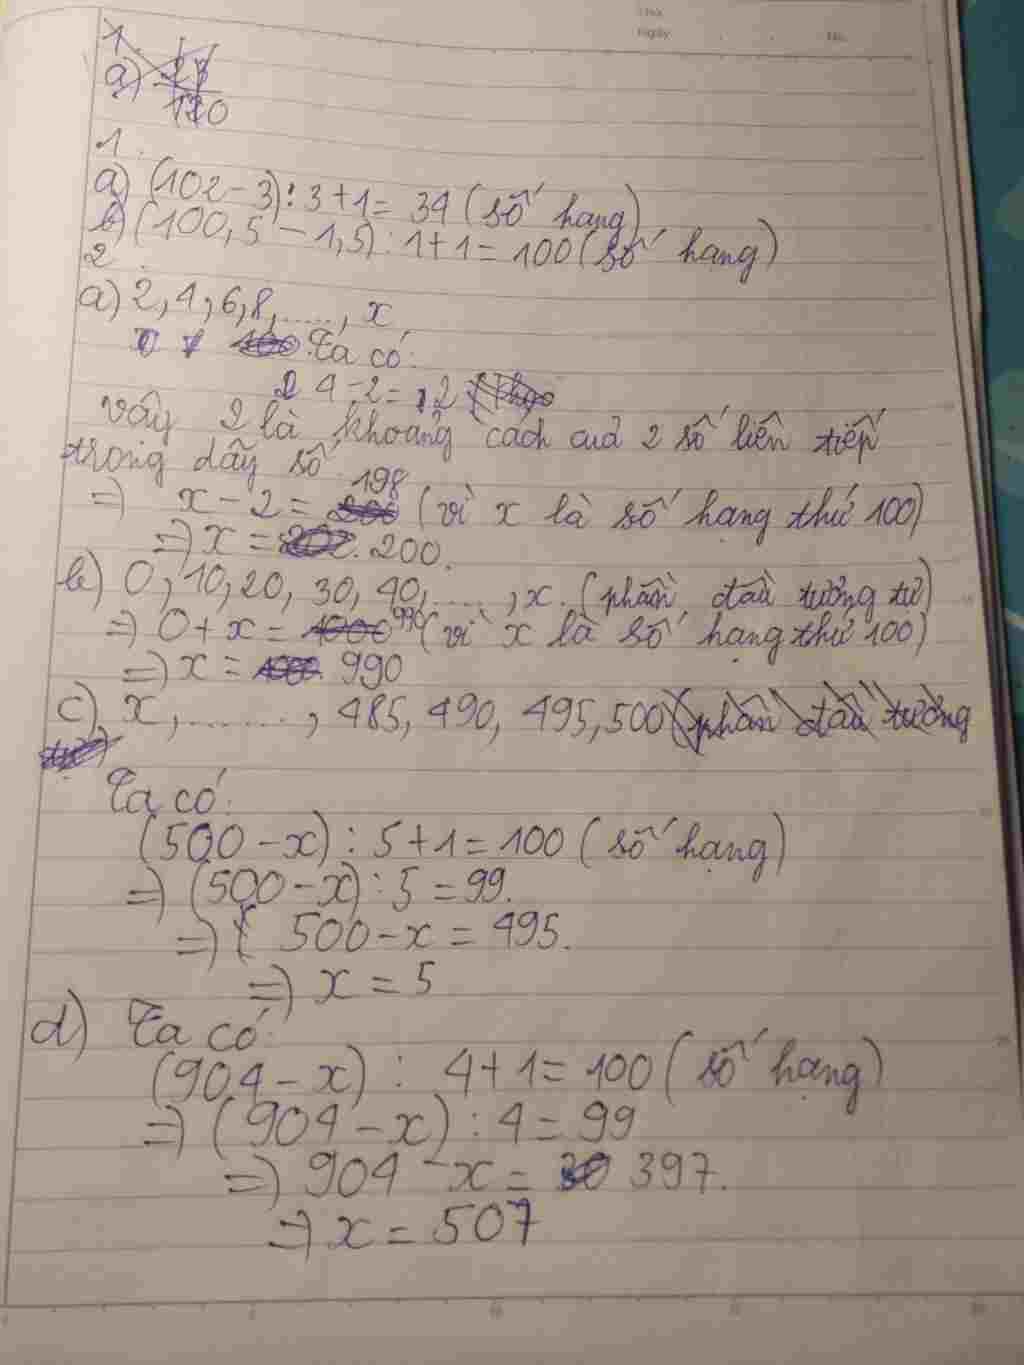 Ngày No.
1.
a) 23
120
1.
a) (102 - 3) : 3 + 1 = 34 (số hạng)
b) (100,5 - 1,5) : 1 + 1 = 100 (số hạng)
2.
a) 2, 4, 6, 8, ....., x
Ta có:
4 - 2 = 2
Vậy 2 là khoảng cách cuả 2 số liên tiếp
trong dãy số
=) x - 2 = 198 (vì x là số hạng thứ 100)
=) x = 200.
b) 0, 10, 20, 30, 40, ....., x. (phần đầu tương tự)
=) 0 + x = 990 (vì x là số hạng thứ 100)
=) x = 990
c) x, ......., 485, 490, 495, 500 (phần đầu tương
tự)
Ta có:
(500 - x) : 5 + 1 = 100 (số hạng)
=) (500 - x) : 5 = 99.
=) 500 - x = 495.
=) x = 5
d) Ta có:
(904 - x) : 4 + 1 = 100 (số hạng)
=) (904 - x) : 4 = 99
=) 904 - x = 397.
=) x = 507